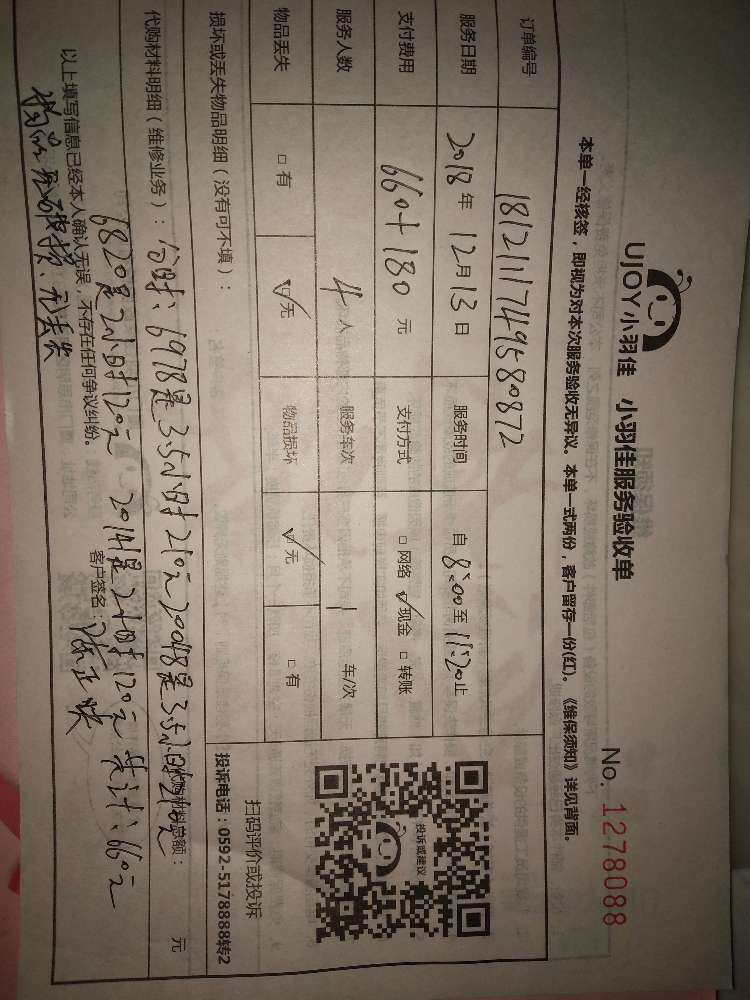 UJOY小羽佳 小羽佳服务验收单
No. 1278088
本单一经核签，即视为对本次服务验收无异议。本单一式两份，客户留存一份(红)。《维保须知》详见背面。
订单编号 1812111749580872
服务日期 2018年12月13日 服务时间 自8:00至11:20止
支付费用 660+180元 支付方式 □网络 ☑现金 □转账
服务人数 4人 服务车次 1 车/次
物品丢失 □有 ☑无 物品损坏 ☑无 □有
投诉或建议
扫码评价或投诉
投诉电话：0592-5178888转2
损坏或丢失物品明细（没有可不填）：
代购材料明细（维修业务）： 代购材料总额： 元
分时：6978是3.5小时210元 20048是3.5小时210元
6820是2小时120元 20141是2小时120元 共计：660元
以上填写信息已经本人确认无误，不存在任何争议纠纷。 客户签名：
物品无破损、无丢失